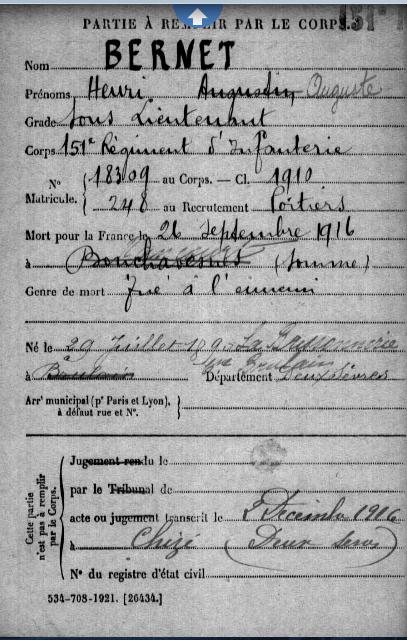 PARTIE À REMPLIR PAR LE CORPS.
Nom BERNET
Prénoms Henri Augustin Auguste
Grade Sous Lieutenant
Corps 151e Régiment d'Infanterie
No Matricule. 18309 au Corps. — Cl. 1910
248 au Recrutement Poitiers
Mort pour la France le 26 Septembre 1916
à Bouchavesnes (Somme)
Genre de mort Tué à l'ennemi
Né le 29 Juillet 189
à Brulain Département Deux Sèvres
Arrt municipal (pr Paris et Lyon), à défaut rue et No.
Cette partie n'est pas à remplir par le Corps.
Jugement rendu le
par le Tribunal de
acte ou jugement transcrit le 2 Décembre 1916
à Chizé (Deux Sèvres)
No du registre d'état civil
534-708-1921. [26434.]